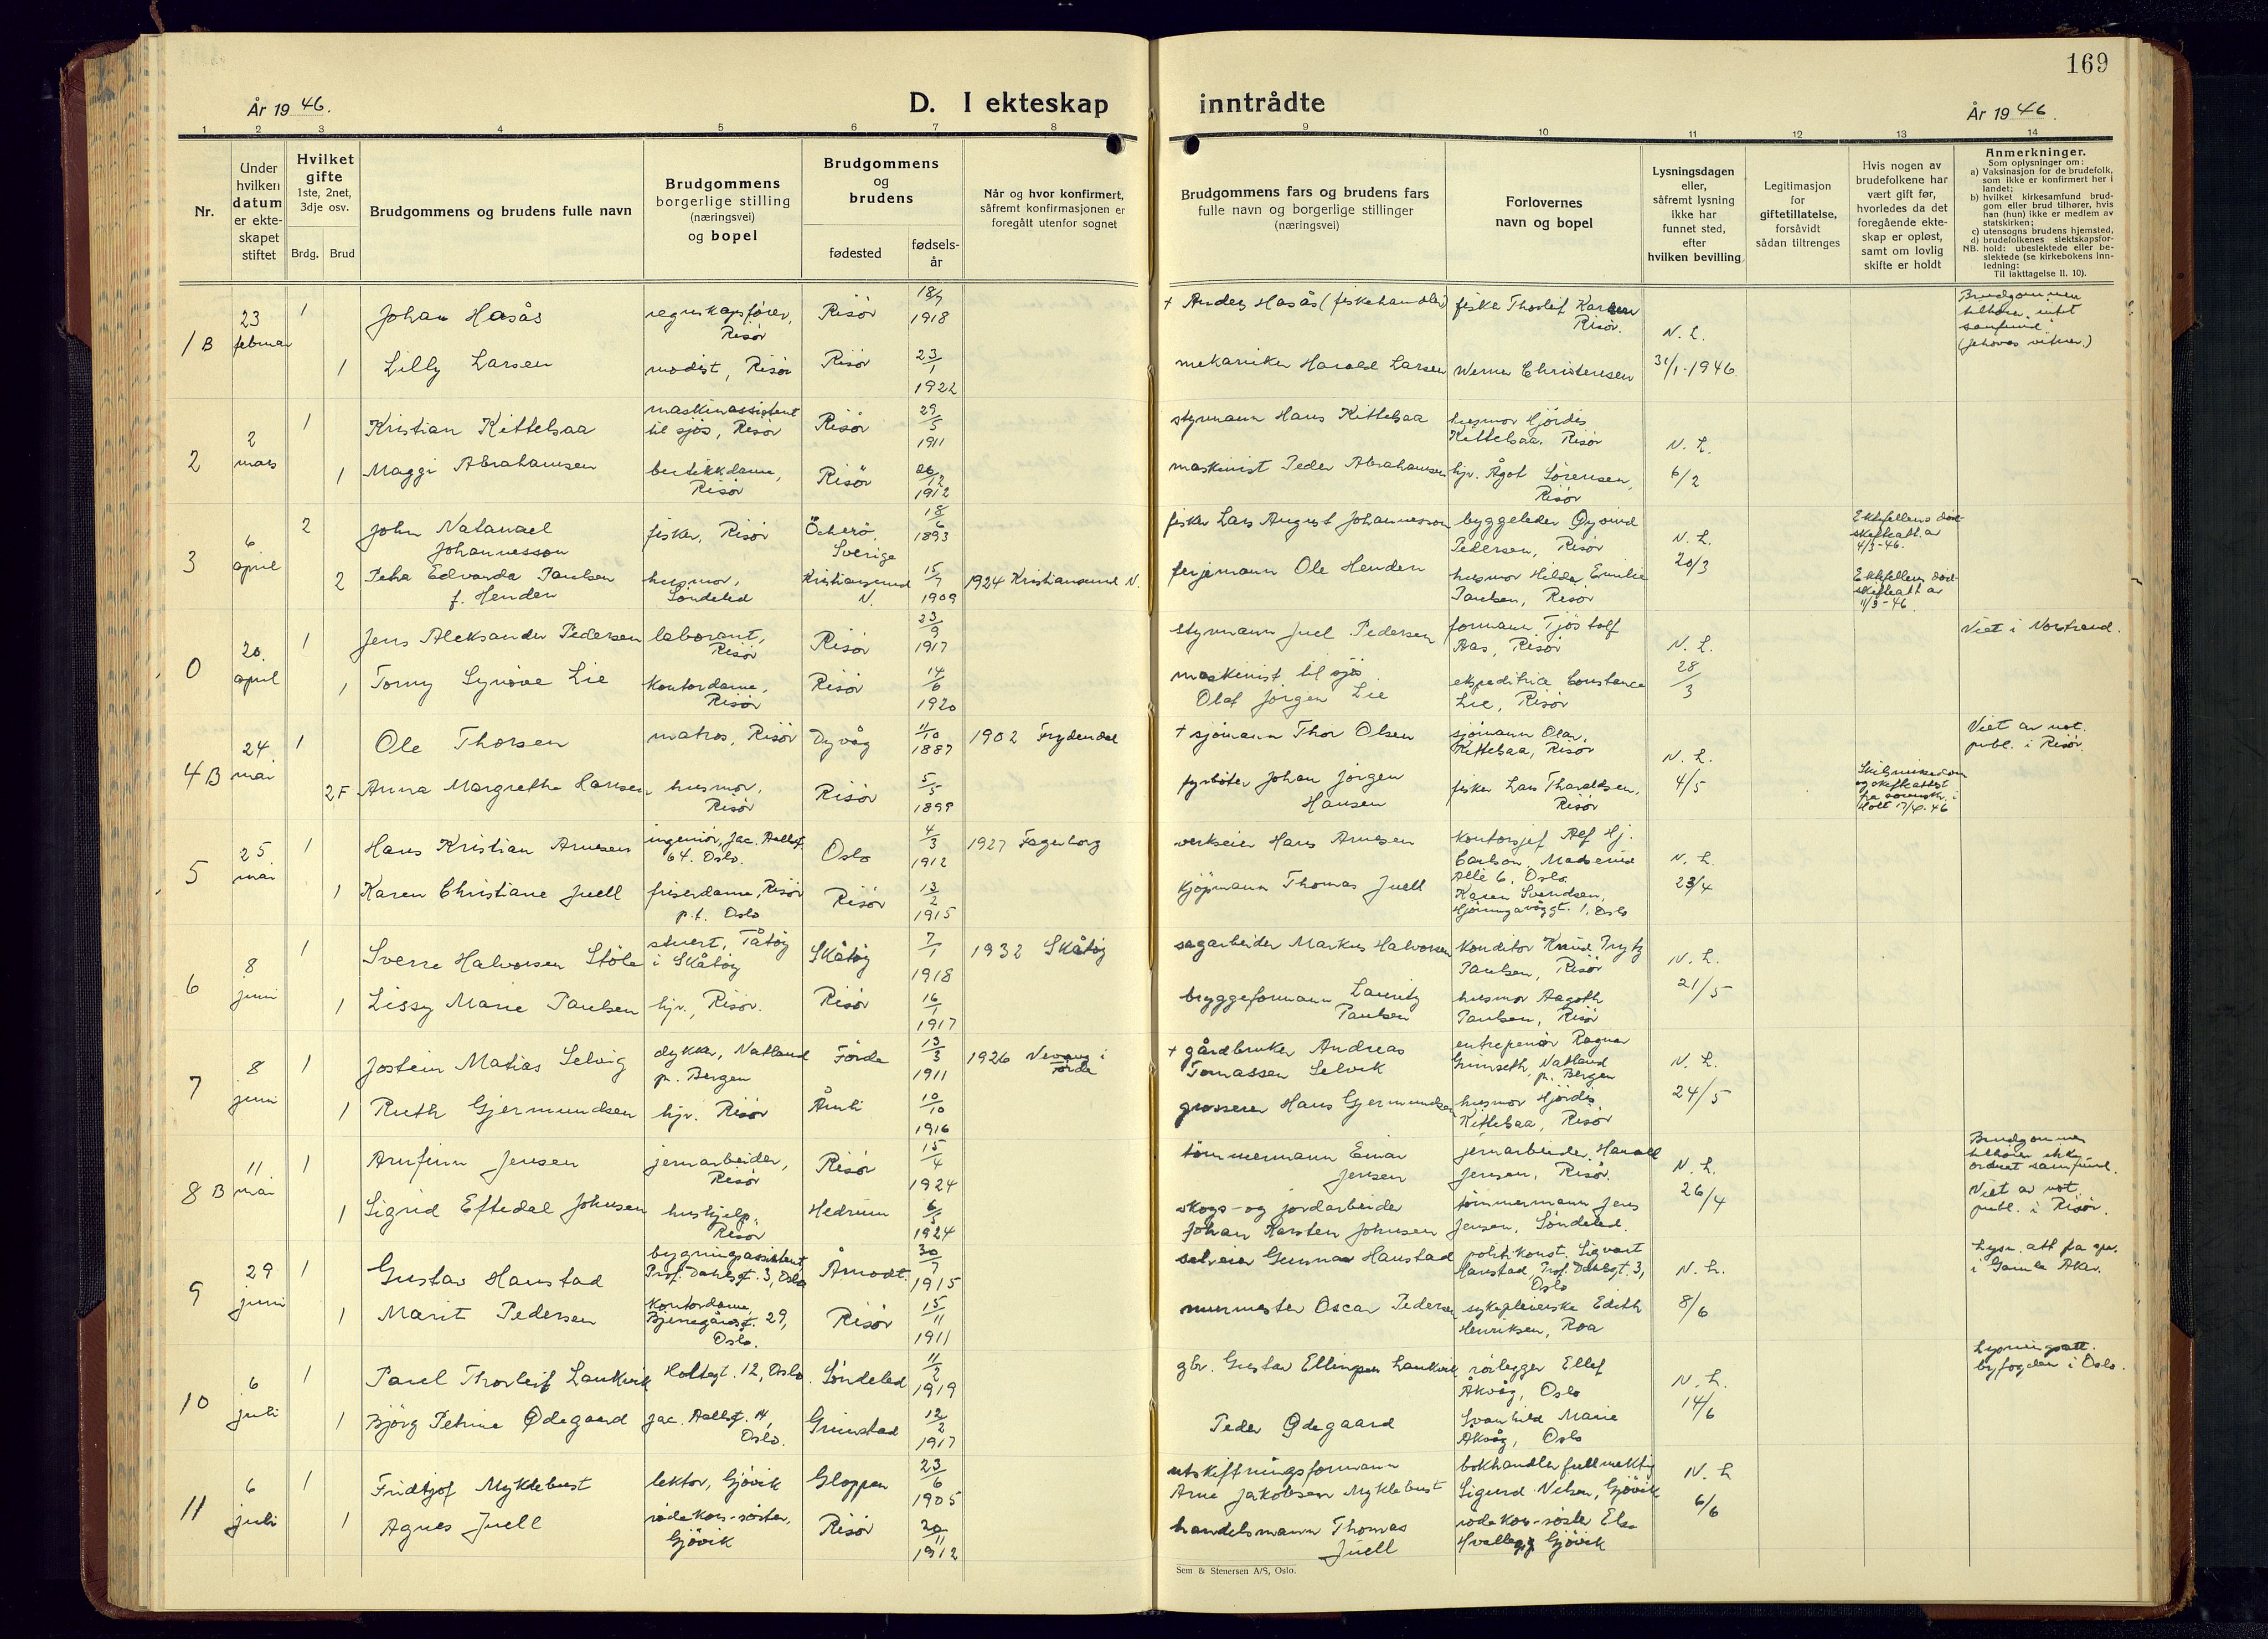 169
År 1946.
D. I ekteskap inntrådte
År 1946.
1 2 3 4 5 6 7 8 9 10 11 12 13 14
Nr.
Under hvilken datum er ekte-skapet stiftet
Hvilket gifte 1ste, 2net, 3dje osv.
Brdg. Brud
Brudgommens og brudens fulle navn
Brudgommens borgerlige stilling (næringsvei) og bopel
Brudgommens og brudens
fødested
fødsels-år
Når og hvor konfirmert, såfremt konfirmasjonen er foregått utenfor sognet
Brudgommens fars og brudens fars fulle navn og borgerlige stillinger (næringsvei)
Forlovernes navn og bopel
Lysningsdagen eller, såfremt lysning ikke har funnet sted, efter hvilken bevilling
Legitimasjon for giftetillatelse, forsåvidt sådan tiltrenges
Hvis nogen av brudefolkene har vært gift før, hvorledes da det foregående ekte-skap er opløst, samt om lovlig skifte er holdt
Anmerkninger.
Som oplysninger om:
a) Vaksinasjon for de brudefolk, som ikke er konfirmert her i landet;
b) hvilket kirkesamfund brud-gom eller brud tilhører, hvis han (hun) ikke er medlem av statskirken;
c) utensogns brudens hjemsted,
d) brudefolkenes slektskapsfor-hold: ubeslektede eller be-slektede (se kirkebokens inn-ledning:
NB.
Til iakttagelse II. 10).
1 B 23 februar 1 Johan Hasås regnskapsfører, Risør Risør 18/7 1918 + Anders Hasås (fiskehandler) fisker Thorleif Karlsen Risør. N. L. Brudgommen tilhører intet samfund (Jehovas vitner.)
1 Lilly Larsen modist, Risør Risør 23/1 1922 mekaniker Harald Larsen Werner Christensen 31/1-1946
2 2 mars 1 Kristian Kittelsaa maskinassistent til sjøs, Risør Risør 29/5 1911 styrmann Hans Kittelsaa husmor Hjördis Kittelsaa, Risør N. L.
1 Maggi Abrahamsen butikkdame, Risør Risør 26/12 1912 maskinist Peder Abrahamsen hjv. Ågot Sörensen, Risør 6/2
3 6 april 2 John Natanael Johannesson fisker, Risør Öcherö, Sverige 18/6 1893 fisker Lars August Johannesson byggeleder Øyvind Pedersen, Risør N. L. Ektefellens død skifteatt. av 4/3-46.
2 Petra Edvarda Paulsen f. Henden husmor, Söndeled Kristiansund N. 15/7 1909 1924 Kristiansund N. ferjemann Ole Henden husmor Hilda Emilie Paulsen, Risør 20/3 Ektefellens død skifteatt av 11/3-46
0 20. april 1 Jens Aleksander Pedersen laborant, Risør Risør 23/9 1917 styrmann Juel Pedersen formann Tjöstolf Aas, Risør N. L. Viet i Norstrand.
1 Torny Synöve Lie kontordame, Risør Risør 14/6 1920 maskinist til sjøs Olaf Jørgen Lie ekspeditrice Constance Lie, Risør 28/3
4 B 24 mai 1 Ole Thorsen matros, Risør Dyvåg 11/10 1887 1902 Frydendal + sjömann Thor Olsen sjömann Olav Kittelsaa, Risør N. L. Viet av not. publ. i Risør.
2 F Anna Margrethe Hansen husmor, Risør Risør 5/5 1899 fyrböter Johan Jörgen Hansen fisker Lars Tharaldsen, Risør 4/5 og skifteattest fra sorenskr. i Holt 17/4.46
5 25 mai 1 Hans Kristian Arnesen ingeniör, Jac. Aallsgt. 64. Oslo. Oslo 4/3 1912 1927 Fagerborg verkseier Hans Arnesen kontorsjef Alf Hj. Carlson, Madserud Allé 6, Oslo. N. L.
1 Karen Christiane Juell friserdame, Risør p.t. Oslo Risør 13/2 1915 kjöpmann Thomas Juell Karen Svendsen, Hjörungavåggt. 1, Oslo 23/4
6 8 juni 1 Sverre Halvorsen Stöle stuert, Tåtöy i Skåtöy Skåtöy 7/1 1918 1932 Skåtöy sagarbeider Markus Halvorsen konditor Knud Trytz Paulsen, Risør N. L.
1 Lissy Marie Paulsen hjv., Risør. Risør 16/1 1917 bryggeformann Lauritz Paulsen husmor Aagoth Paulsen, Risør 21/5
7 8 juni 1 Jostein Matias Selvig dykker, Natland pr. Bergen Förde 13/3 1911 1926 Vevring i Förde + gårdbruker Andreas Tomassen Selvik entreprenör Ragnar Grimseth, Natland pr. Bergen N. L.
1 Ruth Gjermundsen hjv. Risør Åmli 10/10 1916 grosserer Hans Gjermundsen husmor Hjördis Kittelsaa, Risør 24/5
8 B 11 mai 1 Arnfinn Jensen jernarbeider, Risør Risør 15/4 1924 tömmermann Einar Jensen jernarbeider Harald Jensen, Risør. N. L. Brudgommen tilhører ikke ordnet samfund.
1 Sigrid Eftedal Johnsen hushjelp, Risør Hedrum 6/5 1924 skogs- og jordarbeider Johan Karsten Johnsen tömmermann Jens Jensen, Söndeled. 26/4 Viet av not. publ. i Risør.
9 29 juni 1 Gustav Hanstad bygningsassistent Prof. Dahlsgt. 3, Oslo Åmodt. 30/7 1915 selveier Gunnar Hanstad politikonst. Sigvart Hanstad, Prof. Dahlsgt. 3, Oslo N. L. Lysn. att fra spr. i Gamle Aker.
1 Marit Pedersen kontordame, Bjerregårdsgt. 29, Oslo. Risør 15/11 1911 murmester Oscar Pedersen sykepleierske Edith Henriksen, Roa 8/6
10 6 juli 1 Paul Thorleif Lankvik Holtegt. 12, Oslo. Söndeled 11/2 1919 gbr. Gustav Ellingsen Lankvik rörlegger Ellef Åkvåg, Oslo N. L. Lysningsatt. byfogden i Oslo.
1 Björg Petrine Ødegaard Jac. Aallsgt. 14, Oslo. Grimstad 12/2 1917 Peder Ødegaard Svanhild Marie Åkvåg, Oslo 14/6
11 6 juli 1 Fridtjof Myklebust lektor, Gjövik Gloppen 23/6 1905 utskiftningsformann Arne Jakobsen Myklebust bokhandlerfullmektig Sigurd Nilsen, Gjövik N. L.
1 Agnes Juell röde kors-söster, Gjövik Risør 20/11 1912 handelsmann Thomas Juell röde kors-söster Elsa Gjövik 6/6
Sem & Stenersen A/S, Oslo.